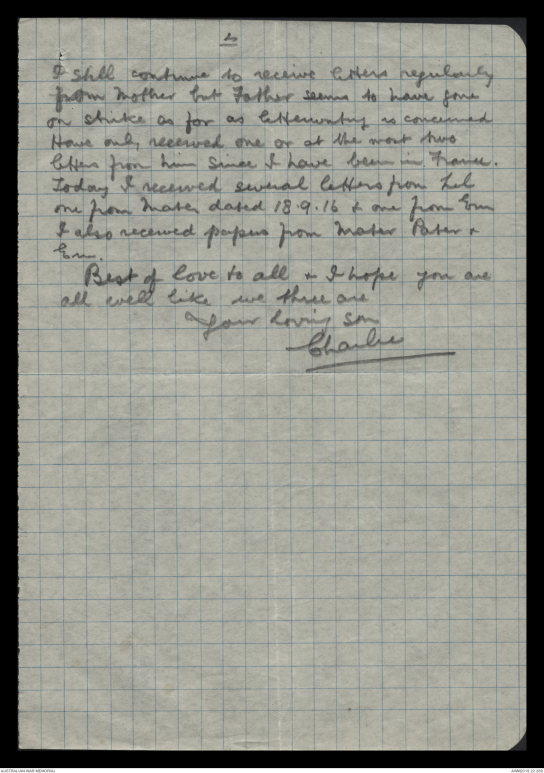 4
I still continue to receive letters regularly
from Mother but Father seems to have gone
on strike as far as letterwriting is concerned
Have only received one or at the most two
letters from him since I have been in France.
Today I received several letters from Lel
one from Mater dated 18.9.16 & one from Em
I also received papers from Mater Pater &
Em.
Best of love to all & I hope you are
all well like we three are
Your loving son
Charlie
AUSTRALIAN WAR MEMORIAL